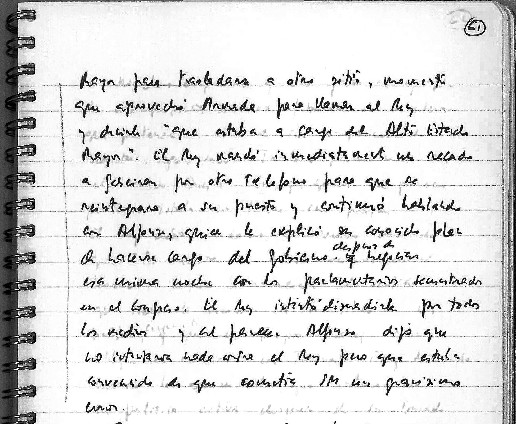 21
Mayor para trasladarse a otro sitio, momento
que aprovechó Armada para llamar al Rey
y decirle "que estaba a cargo del Alto Estado
Mayor". El Rey mandó inmediatament un recado
a por otro teléfono para que se
reintegrara a su puesto y continuó hablando
con Alfonso, quien le explicó su conocido plan
de hacerse cargo del Gobierno después de negociar
esa misma noche con los parlamentarios secuestrados
en el Congreso. El Rey intentó disuadirle por todos
los medios y al parecer Alfonso dijo que
no intentara nada contra el Rey pero que estaba
convencido de que cometía SM un gravísimo
error.